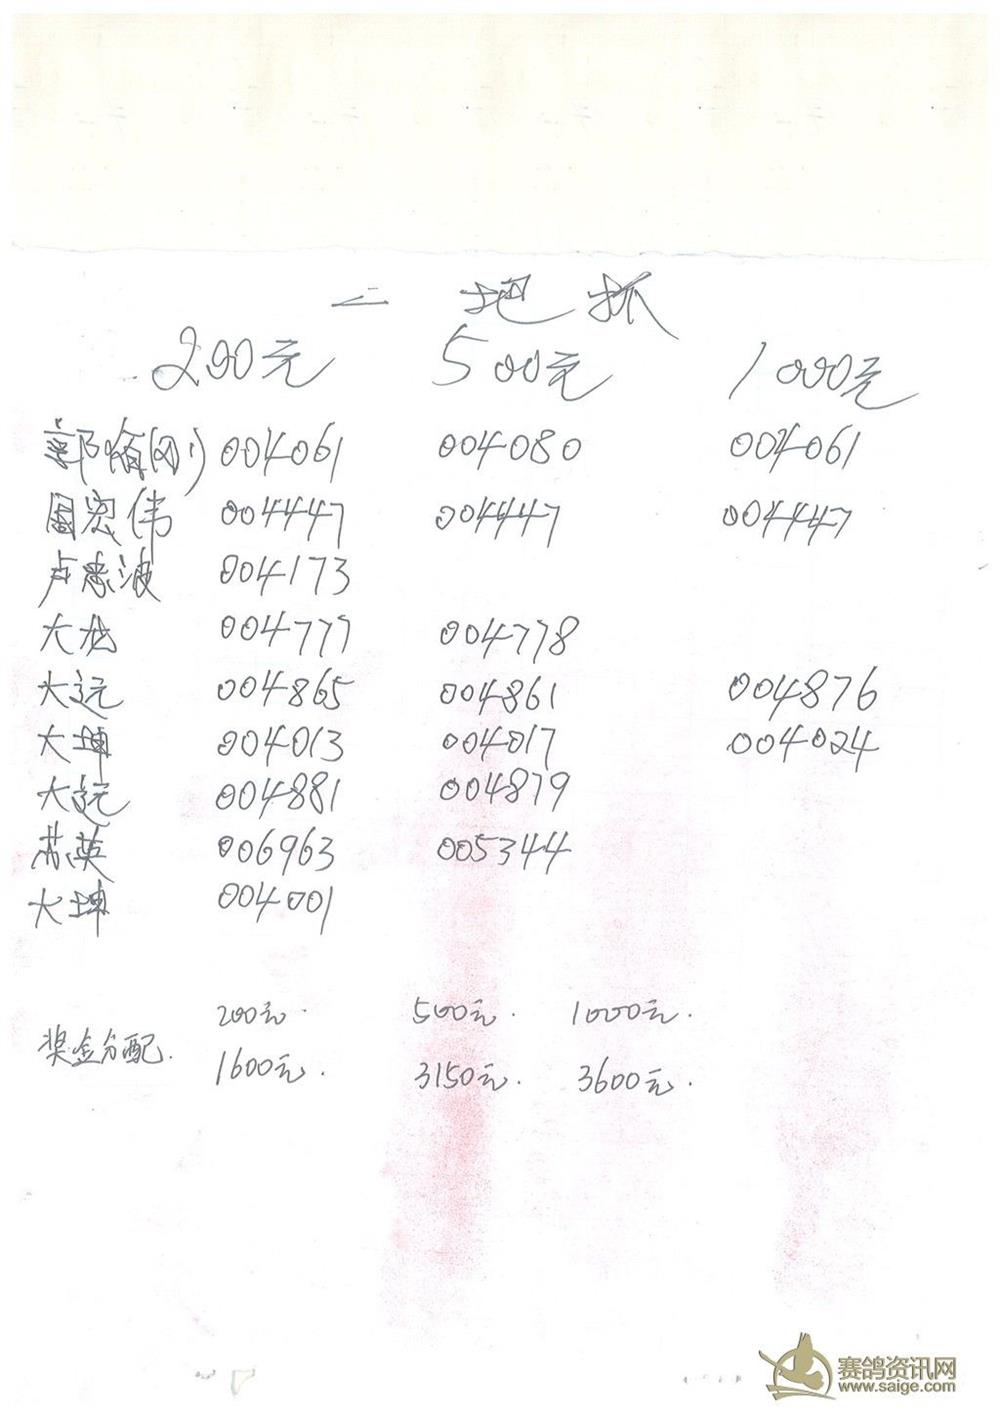 二 地 抓
200元 500元 1000元
004061 004080 004061
周宏伟 004447 004447 004447
卢惠波 004173
大龙 004777 004778
大远 004865 004861 004876
大坤 004013 004017 004024
大远 004881 004879
英 006963 005344
大坤 004001
200元. 500元. 1000元.
奖金分配.
1600元. 3150元. 3600元.
赛鸽资讯网
www.saige.com